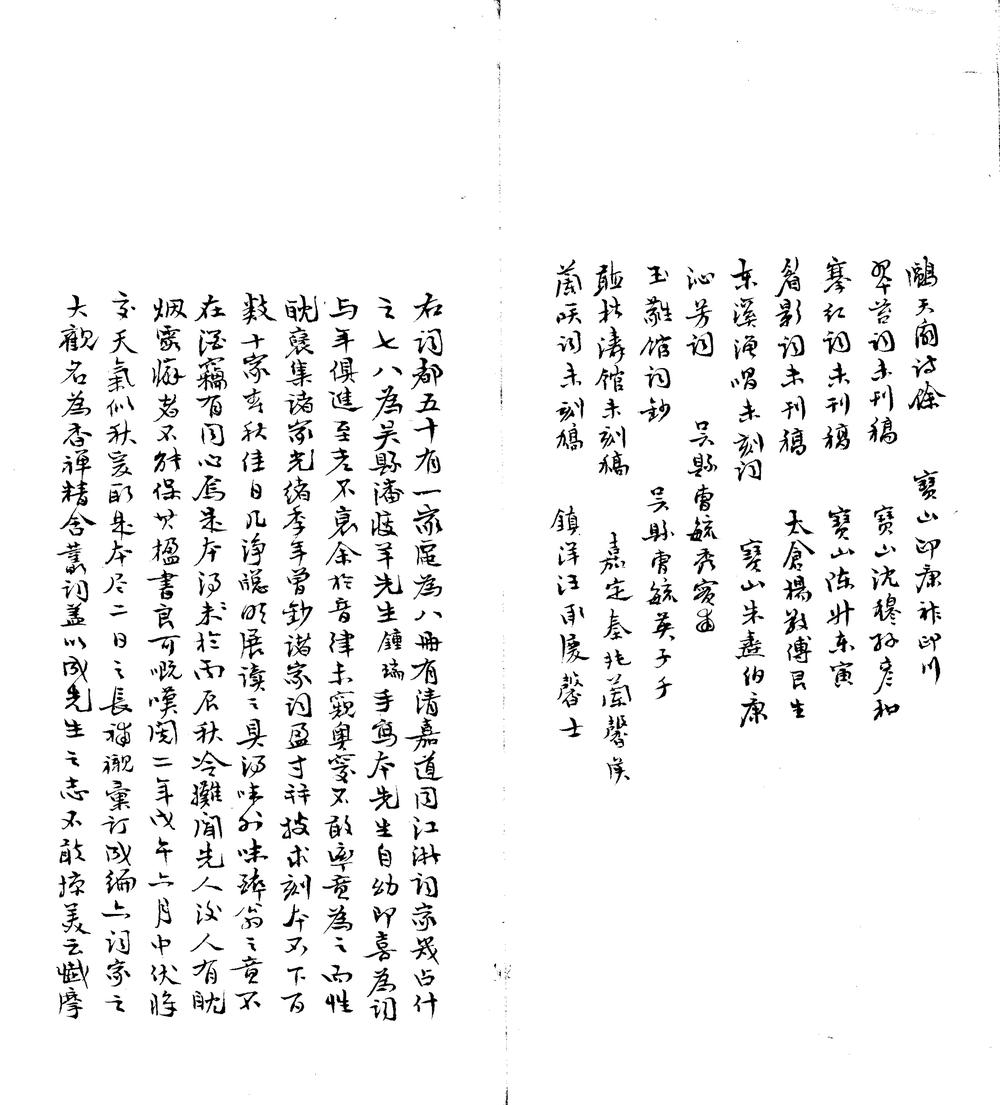 鷗天閣詩餘 寶山印康祚印川
翠苔詞未刊稿 寶山沈穆孫彥和
搴紅詞未刊稿 寶山陳升東寅
眉影詞未刊稿 太倉楊敬傅艮生
東溪漁唱未刻詞 寶山朱燾伯康
沁芳詞 吳縣曹毓秀實甫
玉𪗆館詞鈔 吳縣曹毓英子千
聽松濤館未刻稿 嘉定秦兆蘭馨侯
蘭咲詞未刻稿 鎮洋汪承慶馨士
右詞都五十有一家釐為八冊有清嘉道同江浙詞家幾占什
之七八為吳縣潘瘦羊先生鍾瑞手寫本先生自幼即喜為詞
与年俱進至老不衰余於音律未窺奧窔不敢率意為之而性
耽裒集諸家光緒季年曾鈔諸家詞盈寸許技求刻本不下百
數十家春秋佳日几淨聰明展讀之具得味外味醉翁之意不
在酒竊有同心焉是本得來於丙辰秋冷攤聞先人沒人有耽
烟霞癖者不能保其楹書良可慨嘆閱二年戊午六月中伏將
交天氣似秋爰取是本尽二日之長補襯彙訂成編亦詞家之
大觀名為香禪精舍叢詞蓋以成先生之志不敢掠美云懺摩